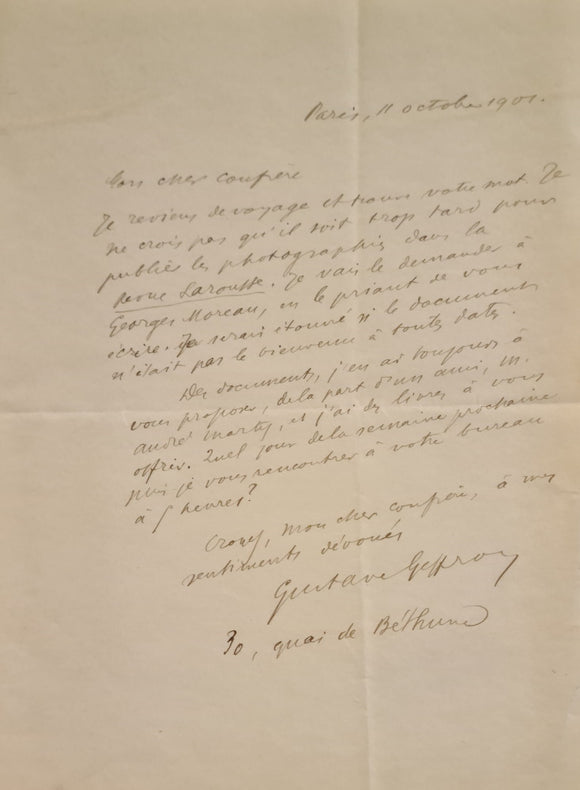 Paris, 11 octobre 1901.
Mon cher confrère
Je reviens de voyage et trouve votre mot. Je
ne crois pas qu'il soit trop tard pour
publier les photographies dans la
Revue Larousse. Je vais le demander à
Georges Moreau, en le priant de vous
écrire. Je serais étonné si le document
n'était pas le bienvenu à toutes dates.
Des documents, j'en ai toujours à
vous proposer, de la part d'un ami, M.
André Marty, et j'ai des livres à vous
offrir. Quel jour de la semaine prochaine
puis je vous rencontrer à votre bureau
à 5 heures?
Croyez, mon cher confrère, à mes
sentiments dévoués
Gustave Geffroy
30, quai de Béthune